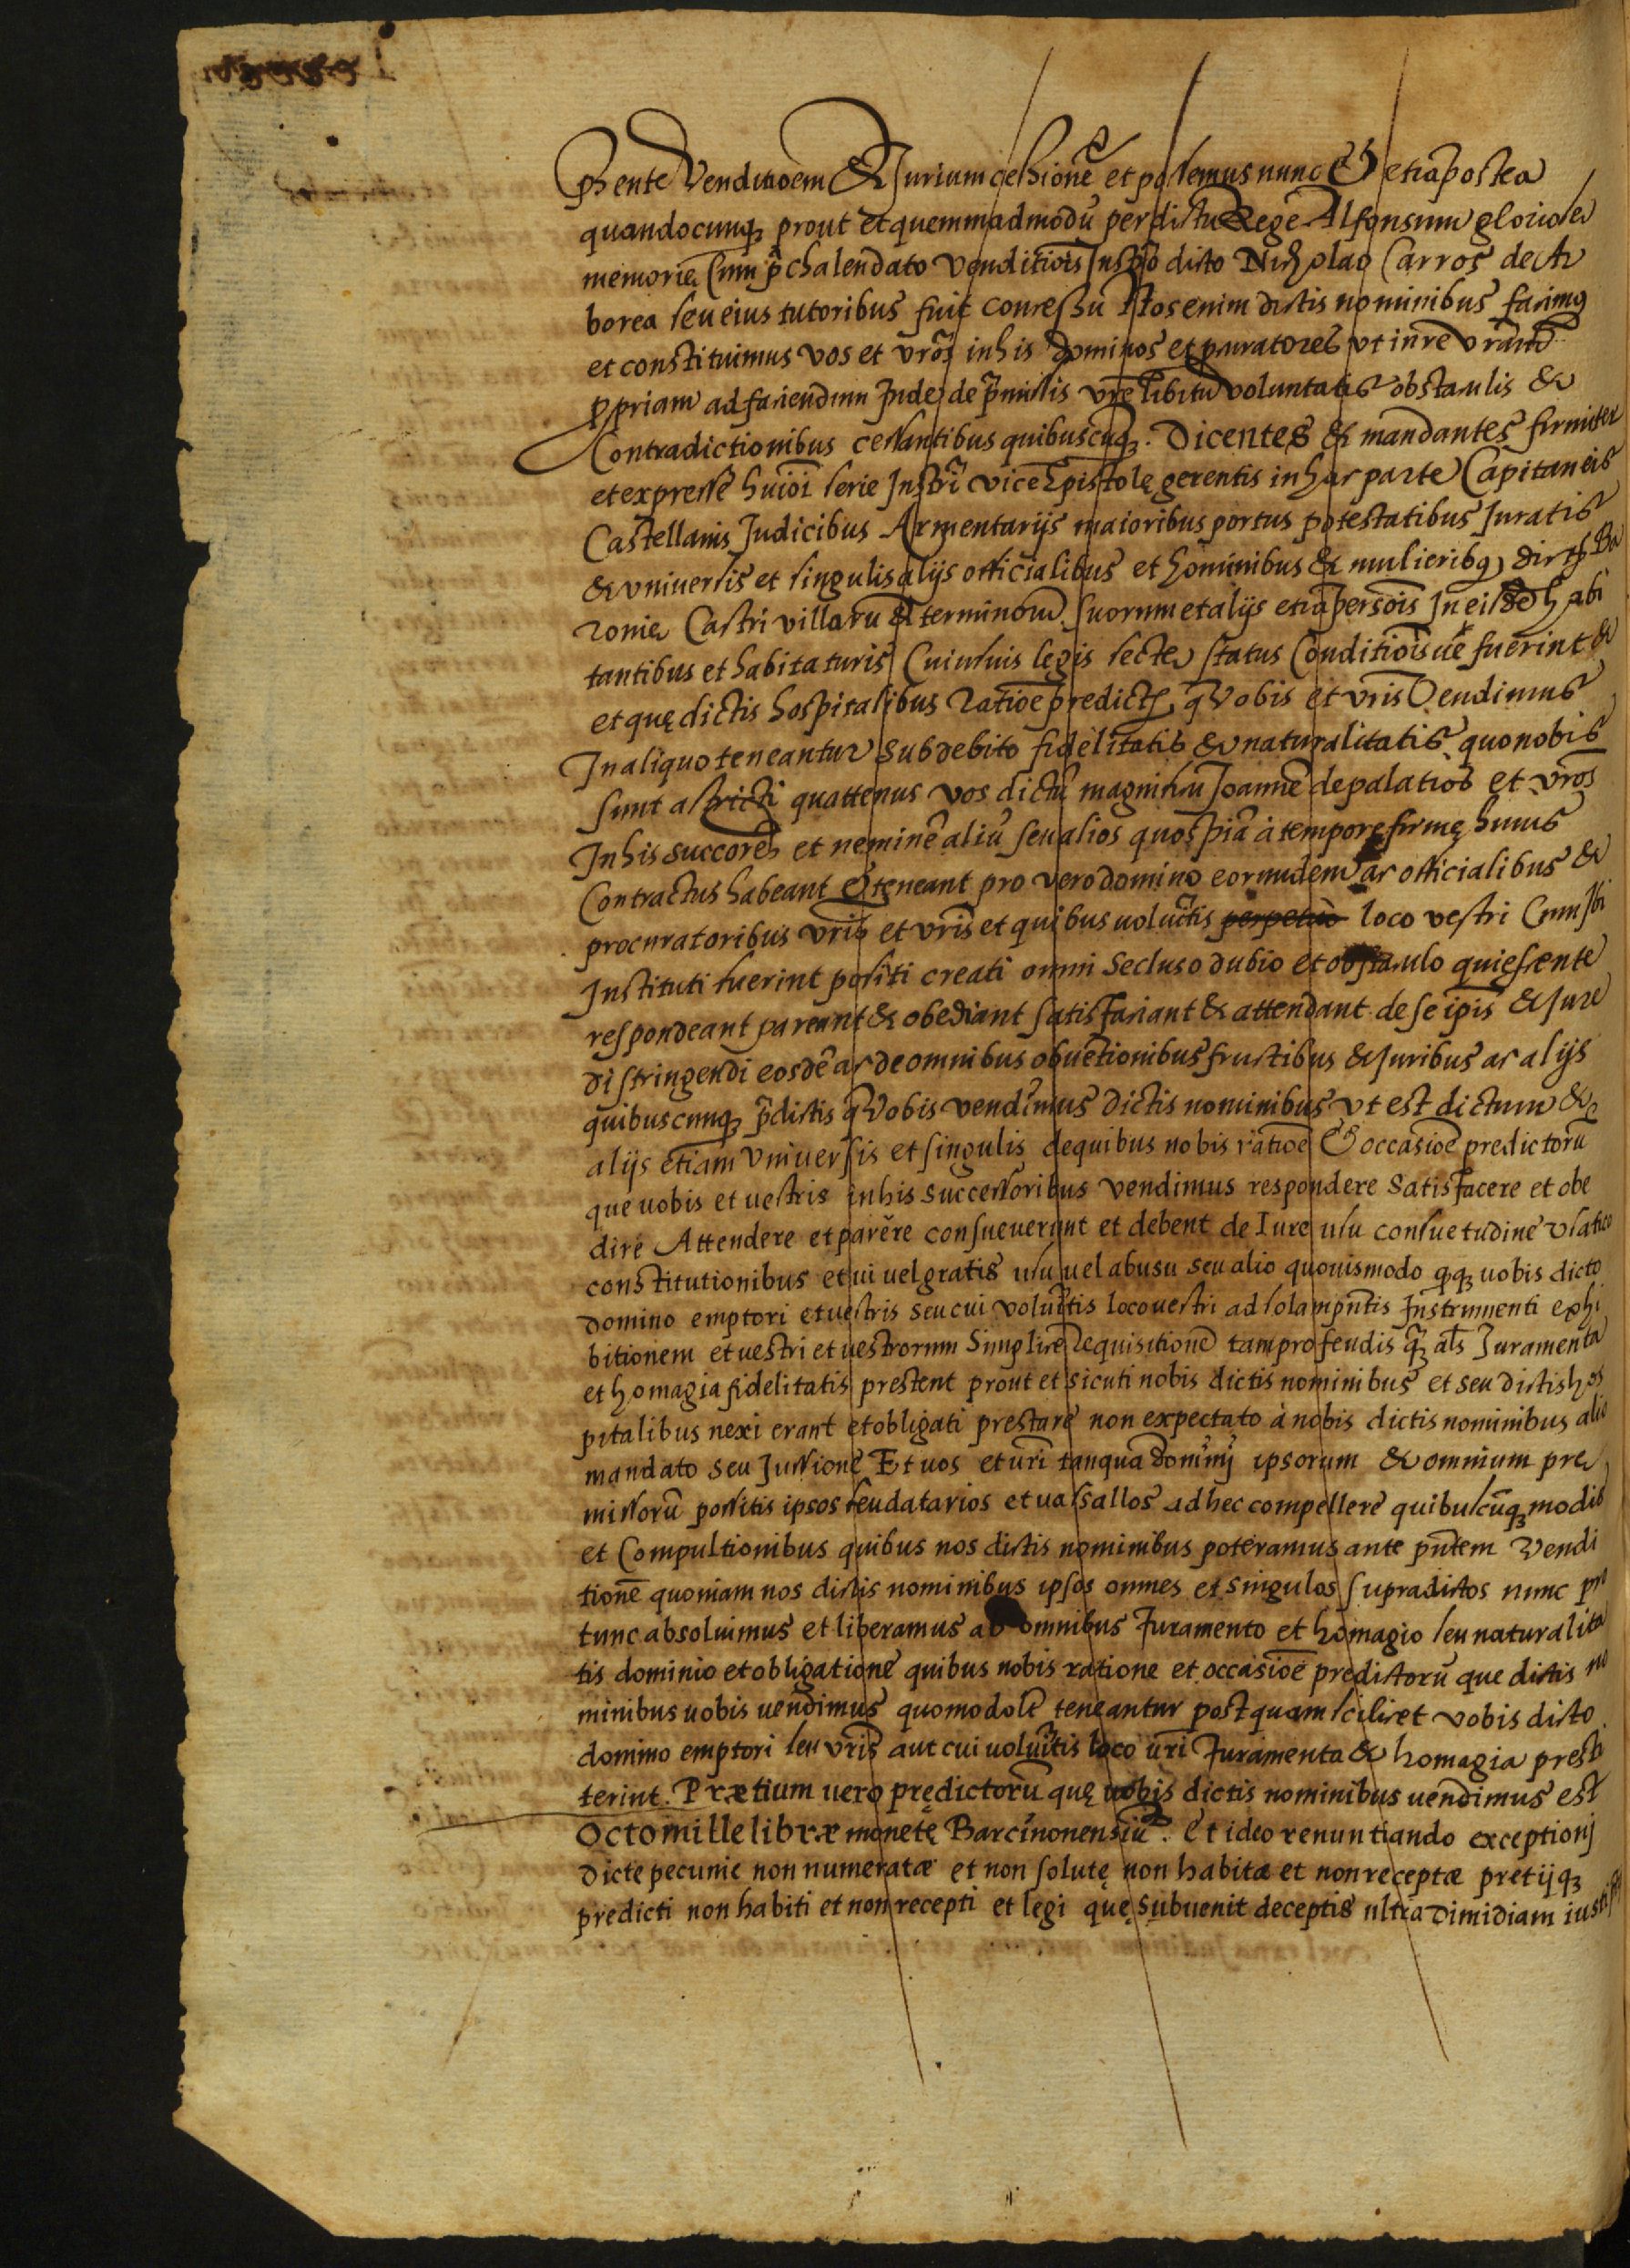 pñte Venditioem & Jurium cessionẽ et possemus nunc & etiã postea
quandocunqꝫ prout et quemmadmodũ per dictũ Regẽ Alfonsum gloriose
memorie Cum p̃chalendato venditiõis Instr̃o dicto Nicholao Carros de Ar
borea seu eius tutoribus fuit concessũ Nos enim dictis nominibus facimus
et constituimus vos et vrõs in his dominos et p̱curatores vt in re vrã and
p̱priam ad faciendum Inde de p̃missis vr̃e libitũ voluntatis obstaculis &
Contradictionibus cessantibus quibuscũqꝫ. Dicentes & mandantes firmiter
et expressè huiõi serie Instrĩ vicẽ Epistolę gerentis in hac parte Capitaneis
Castellanis Judicibus Armentarijs maioribus portus potestatibus Juratis
& vniuersis et singulis alijs officialibus et hominibus & mulieribꝫ dictę Ba
ronie Castri villarũ & terminorũ suorum et alijs etiã persõis In eisdẽ habi
tantibus et habitaturis Cuiusuis legis secte status Conditiõisue fuerint &
et quę dictis hospitalibus ratiõe predictoꝝ q̃ Vobis et vrĩs Vendimus
In aliquo teneantur sub debito fidelitatis & naturalitatis quo nobis
sunt astricti quattenus vos dictũ magnificũ Joannẽ de palatios et vrõs
In his successores et neminẽ aliũ seu alios quospiã à tempore firmę huius
Contractus habeant & teneant pro vero domino eorumdem ac officialibus &
procuratoribus vrĩs et vrĩs et quibus uoluẽritis perpetuò loco vestri Cum Ibi
Instituti fuerint positi creati omni secluso dubio et obstaculo quiescente
respondeant pareant & obediant satisfaciant & attendant de se ipĩs & Jure
distringendi eosdẽ ac de omnibus obuẽtionibus fructibus & Juribus ac alijs
quibuscunqꝫ p̃dictis q̃ Vobis vendimus dictis nominibus vt est dictum &
alijs etiam Vniuersis et singulis de quibus nobis ratiõe & occasiõe predictorũ
que uobis et uestris in his successoribus vendimus respondere satisfacere et obe
dire Attendere et parẽre consueuerunt et debent de Iure usu consuetudine vsatico
constitutionibus et ui uel gratis usu uel abusu seu alio quouismodo qꝫqꝫ uobis dicto
domino emptori et uestris seu cui voluẽritis loco uestri ad solam pñtis Instrumenti exhi
bitionem et uestri et uestrorum Simplicẽ Requisitionẽ tam pro feudis q̃ꝫ als Juramenta
et homagia fidelitatis prestent prout et sicuti nobis dictis nominibus et seu dictis hos
pitalibus nexi erant et obligati prestarẽ non expectato à nobis dictis nominibus alio
mandato seu Jussione Et uos et urĩ tanquã dominj ipsorum & omnium pre
missorũ possitis ipsos feudatarios et uassallos ad hec compellere quibuscũqꝫ modis
et Compultionibus quibus nos dictis nominibus poteramus ante pñtem Vendi
tionẽ quoniam nos dictis nominibus ipsos omnes et singulos supradictos nunc pro
tunc absoluimus et liberamus ab omnibus Juramento et homagio seu naturalita
tis dominio et obligatione quibus nobis ratione et occasiõe predictorũ que dictis no
minibus uobis uendimus quomodolẽ teneantur postquam scilicet vobis dicto
domino emptori seu vrĩs aut cui uoluẽritis loco urĩ Juramenta & homagia presti
terint. Prætium uero prędictorũ quę uobis dictis nominibus uendimus est
Octo mille libræ monetę Barcinonensiũ. Et ideo renuntiando exceptionj
dicte pecunie non numeratæ et non solutę non habitæ et non receptæ pretijqꝫ
predicti non habiti et non recepti et legi quę subuenit deceptis ultra dimidiam iusti